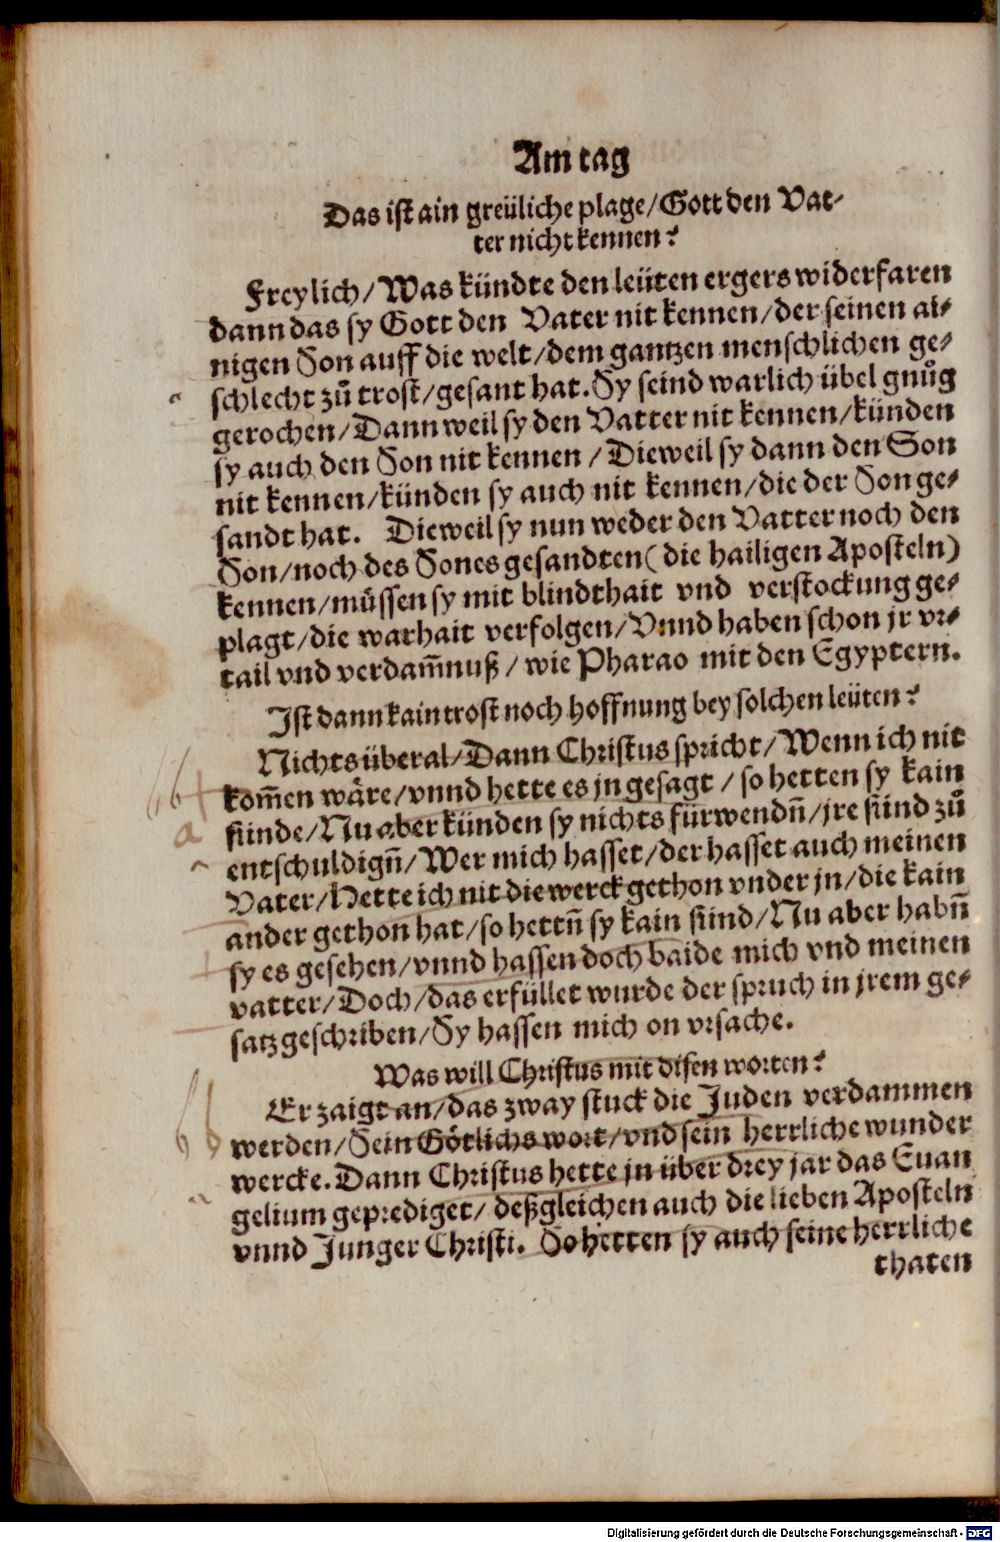 Am tag
Das ist ain greüliche plage/Gott den Vat-
ter nicht kennen?
Freylich/Was kündte den leüten ergers widerfaren
dann das sy Gott den Vater nit kennen/der seinen ai-
nigen Son auff die welt/dem gantzen menschlichen ge-
schlecht zů trost/gesant hat. Sy seind warlich übel gnůg
gerochen/Dann weil sy den Vatter nit kennen/künden
sy auch den Son nit kennen/Dieweil sy dann den Son
nit kennen/künden sy auch nit kennen/die der Son ge-
sandt hat. Dieweil sy nun weder den Vatter noch den
Son/noch des Sones gesandten(die hailigen Aposteln)
kennen/müssen sy mit blindthait vnd verstockung ge-
plagt/die warhait verfolgen/Vnnd haben schon jr vr-
tail vnd verdam̃nuß/wie Pharao mit den Egyptern.
Ist dann kain trost noch hoffnung bey solchen leüten?
Nichts überal/Dann Christus spricht/Wenn ich nit
kom̃en wäre/vnnd hette es jn gesagt/so hetten sy kain
sünde/Nu aber künden sy nichts fürwendn̄/jre sünd zů
entschuldign̄/Wer mich hasset/der hasset auch meinen
Vater/Hette ich nit die werck gethon vnder jn/die kain
ander gethon hat/so hettn̄ sy kain sünd/Nu aber habn̄
sy es gesehen/vnnd hassen doch baide mich vnd meinen
vatter/Doch/das erfüllet wurde der spruch in jrem ge-
satz geschriben/Sy hassen mich on vrsache.
Was will Christus mit disen worten?
Er zaigt an/das zway stuck die Juden verdammen
werden/Sein Götlichs wort/vnd sein herrliche wunder
wercke. Dann Christus hette jn über drey jar das Euan
gelium geprediget/deßgleichen auch die lieben Aposteln
vnnd Junger Christi. So hetten sy auch seine herrliche
thaten
Digitalisierung gefördert durch die Deutsche Forschungsgemeinschaft - DFG